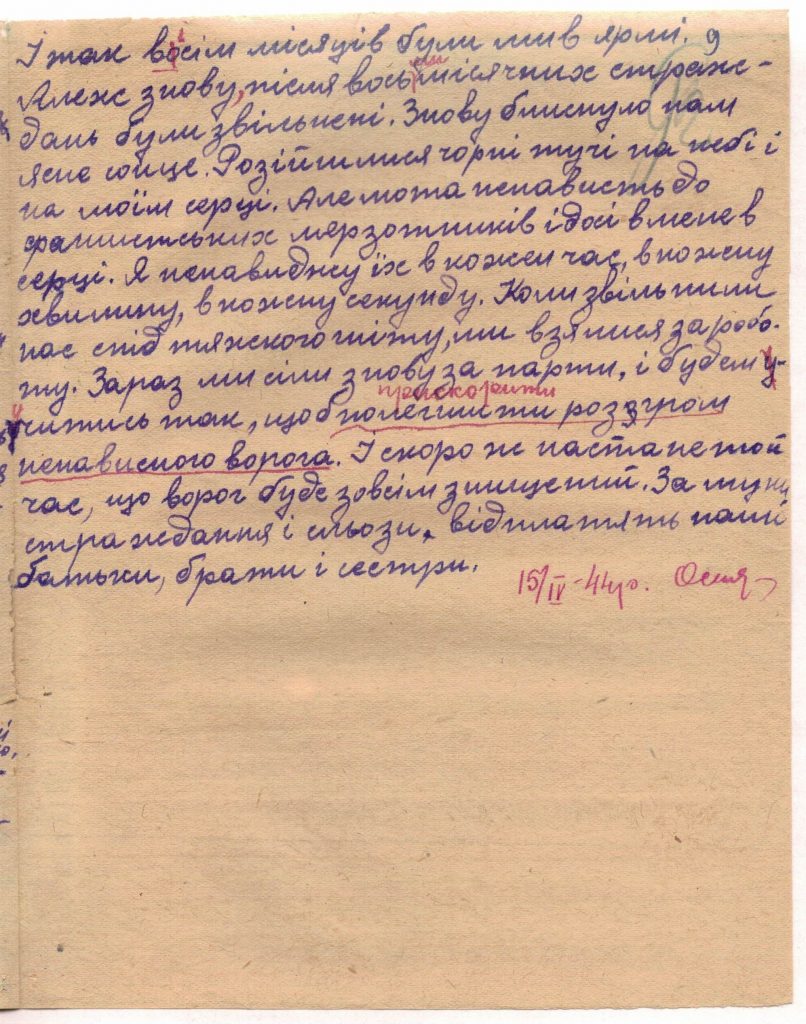 І так восім місяців були ми в ярмі. 9
Алеж знову, після восьмимісячних страж-
дань були звільнені. Знову блиснуло нам
ясне сонце. Розійшлися чорні тучі на небі і
на моїм серці. Але люта ненависть до
фашистських мерзотників і досі в мене в
серці. Я ненавиджу їх в кожен час, в кожну
хвилину, в кожну секунду. Коли звільнили
нас спід тяжского гніту, ми взялися за робо-
ту. Зараз ми сіли знову за парти, і будем у-
прискорити
читись так, щоб полегшити розгром
ненависного ворога. І скоро ж настане той
час, що ворог буде зовсім знищений. За муки
страждання і сльози, відплатять наші
батьки, брати і сестри.
15/IV-44р.